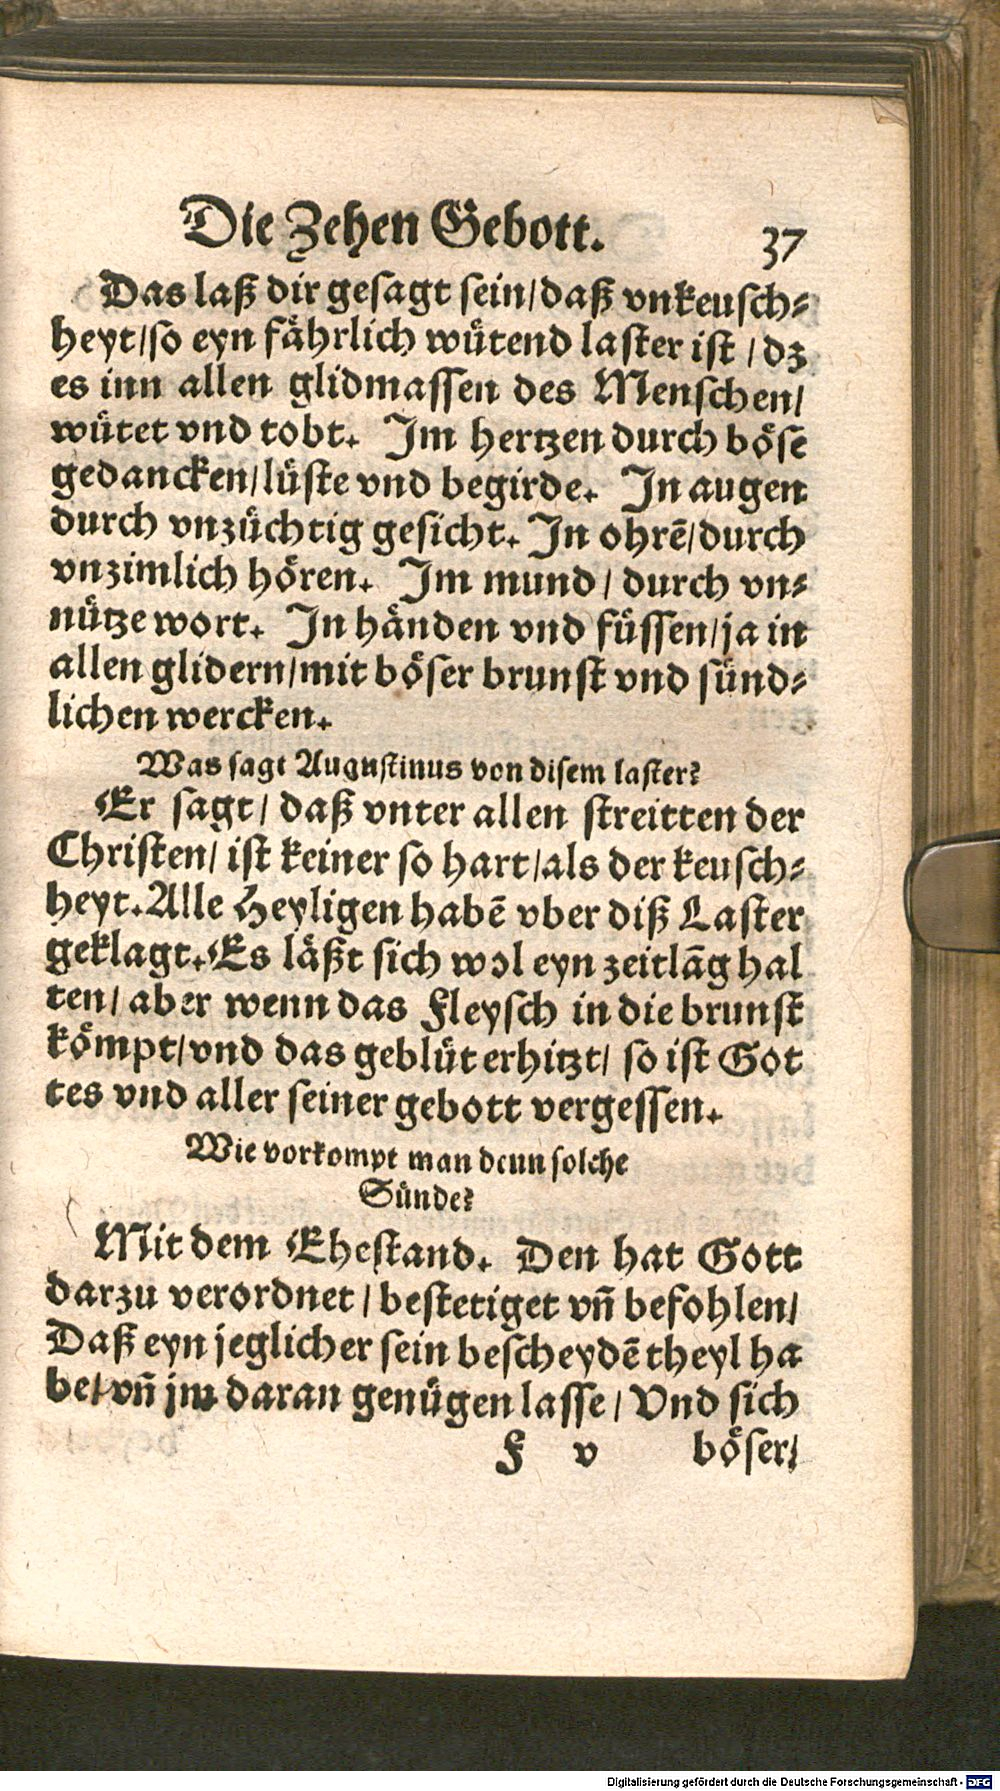 Die Zehen Gebott. 37
Das laß dir gesagt sein/daß vnkeusch⸗
heyt/so eyn fährlich wütend laster ist/dz
es inn allen glidmassen des Menschen/
wütet vnd tobt. Im hertzen durch böse
gedancken/lüste vnd begirde. In augen
durch vnzüchtig gesicht. In ohrē/durch
vnzimlich hören. Im mund/durch vn⸗
nütze wort. In händen vnd füssen/ja in
allen glidern/mit böser brunst vnd sünd⸗
lichen wercken.
Was sagt Augustinus von disem laster?
Er sagt/daß vnter allen streitten der
Christen/ist keiner so hart/als der keusch⸗
heyt. Alle Heyligen habē vber diß Laster
geklagt. Es läßt sich wol eyn zeitlāg hal
ten/aber wenn das Fleysch in die brunst
kömpt/vnd das geblüt erhitzt/so ist Got
tes vnd aller seiner gebott vergessen.
Wie vorkompt man denn solche
Sünde?
Mit dem Ehestand. Den hat Gott
darzu verordnet/bestetiget vñ befohlen/
Daß eyn jeglicher sein bescheydē theyl ha
be/vñ jm daran genügen lasse/Vnd sich
F v böser/
Digitalisierung gefördert durch die Deutsche Forschungsgemeinschaft - DFG